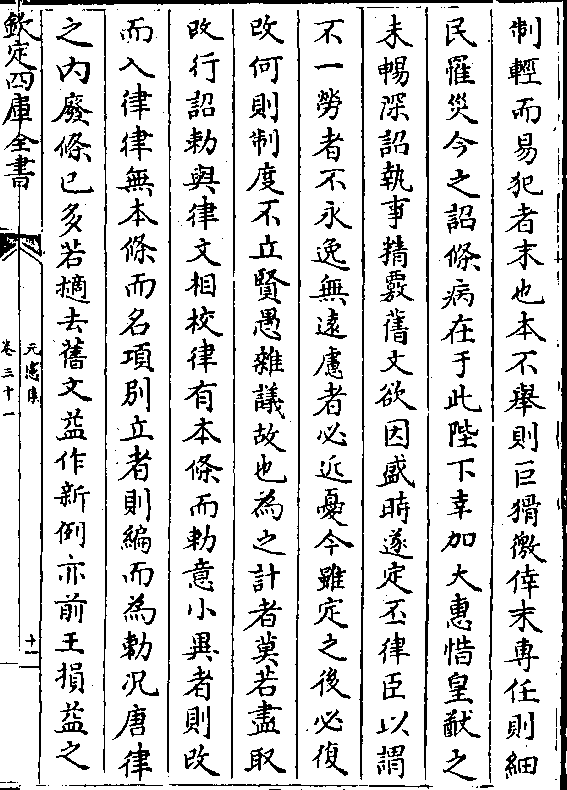 制輕而易犯者末也本不舉則巨猾徼倖末專任則細
民罹災今之詔條病在于此陛下幸加大惠惜皇猷之
未暢深詔執事精覈舊文欲因盛時遂定丕律臣以謂
不一勞者不永逸無遠慮者必近憂今雖定之後必復
改何則制度不立賢愚雜議故也為之計者莫若盡取
改行詔勅與律文相校律有本條而勅意小異者則改
而入律律無本條而名項別立者則編而為勅况唐律
之内廢條已多若擿去舊文益作新例亦前王損益之
欽定四庫全書
元憲集
卷三十一
十一